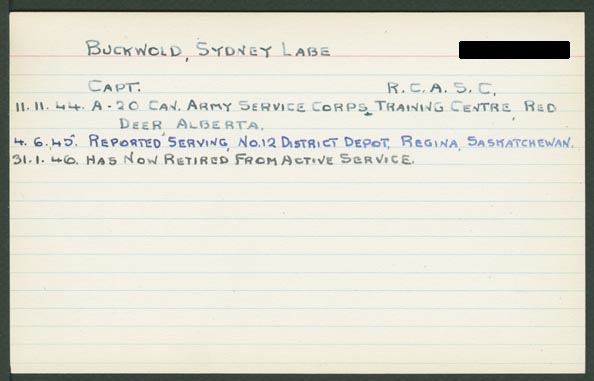 BUCKWOLD, SYDNEY LABE
CAPT. R.C.A.S.C.
11.11.44. A-20 CAN. ARMY SERVICE CORPS TRAINING CENTRE, RED
DEER, ALBERTA.
4.6.45. REPORTED SERVING, NO.12 DISTRICT DEPOT, REGINA, SASKATCHEWAN.
31.1.46. HAS NOW RETIRED FROM ACTIVE SERVICE.